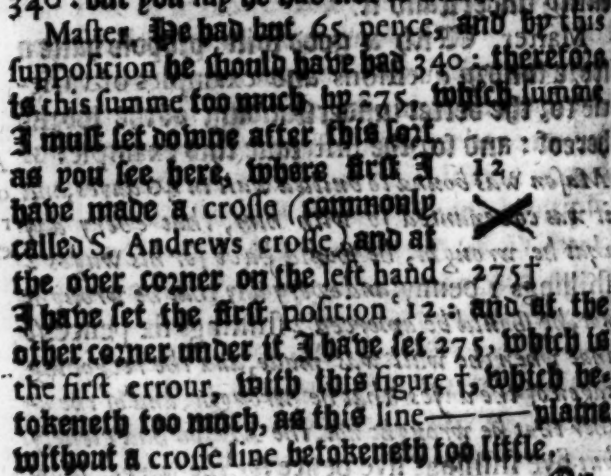 340 : but you say he had not
Maſter. He had but 65 pence, and by this
ſuppoſicion he ſhould have had 340 : therefore
is this ſumme too much by 275, which ſumme
I muſt ſet downe after this ſort
as you ſee here, where firſt I
have made a croſſe (commonly
called S. Andrews croſſe) and at
the over corner on the left hand
I have ſet the firſt poſition 12 : and at the
other corner under it I have ſet 275, which is
the firſt errour, with this figure †, which be-
tokeneth too much, as this line —— plaine
without a croſſe line betokeneth too little.
12
275†